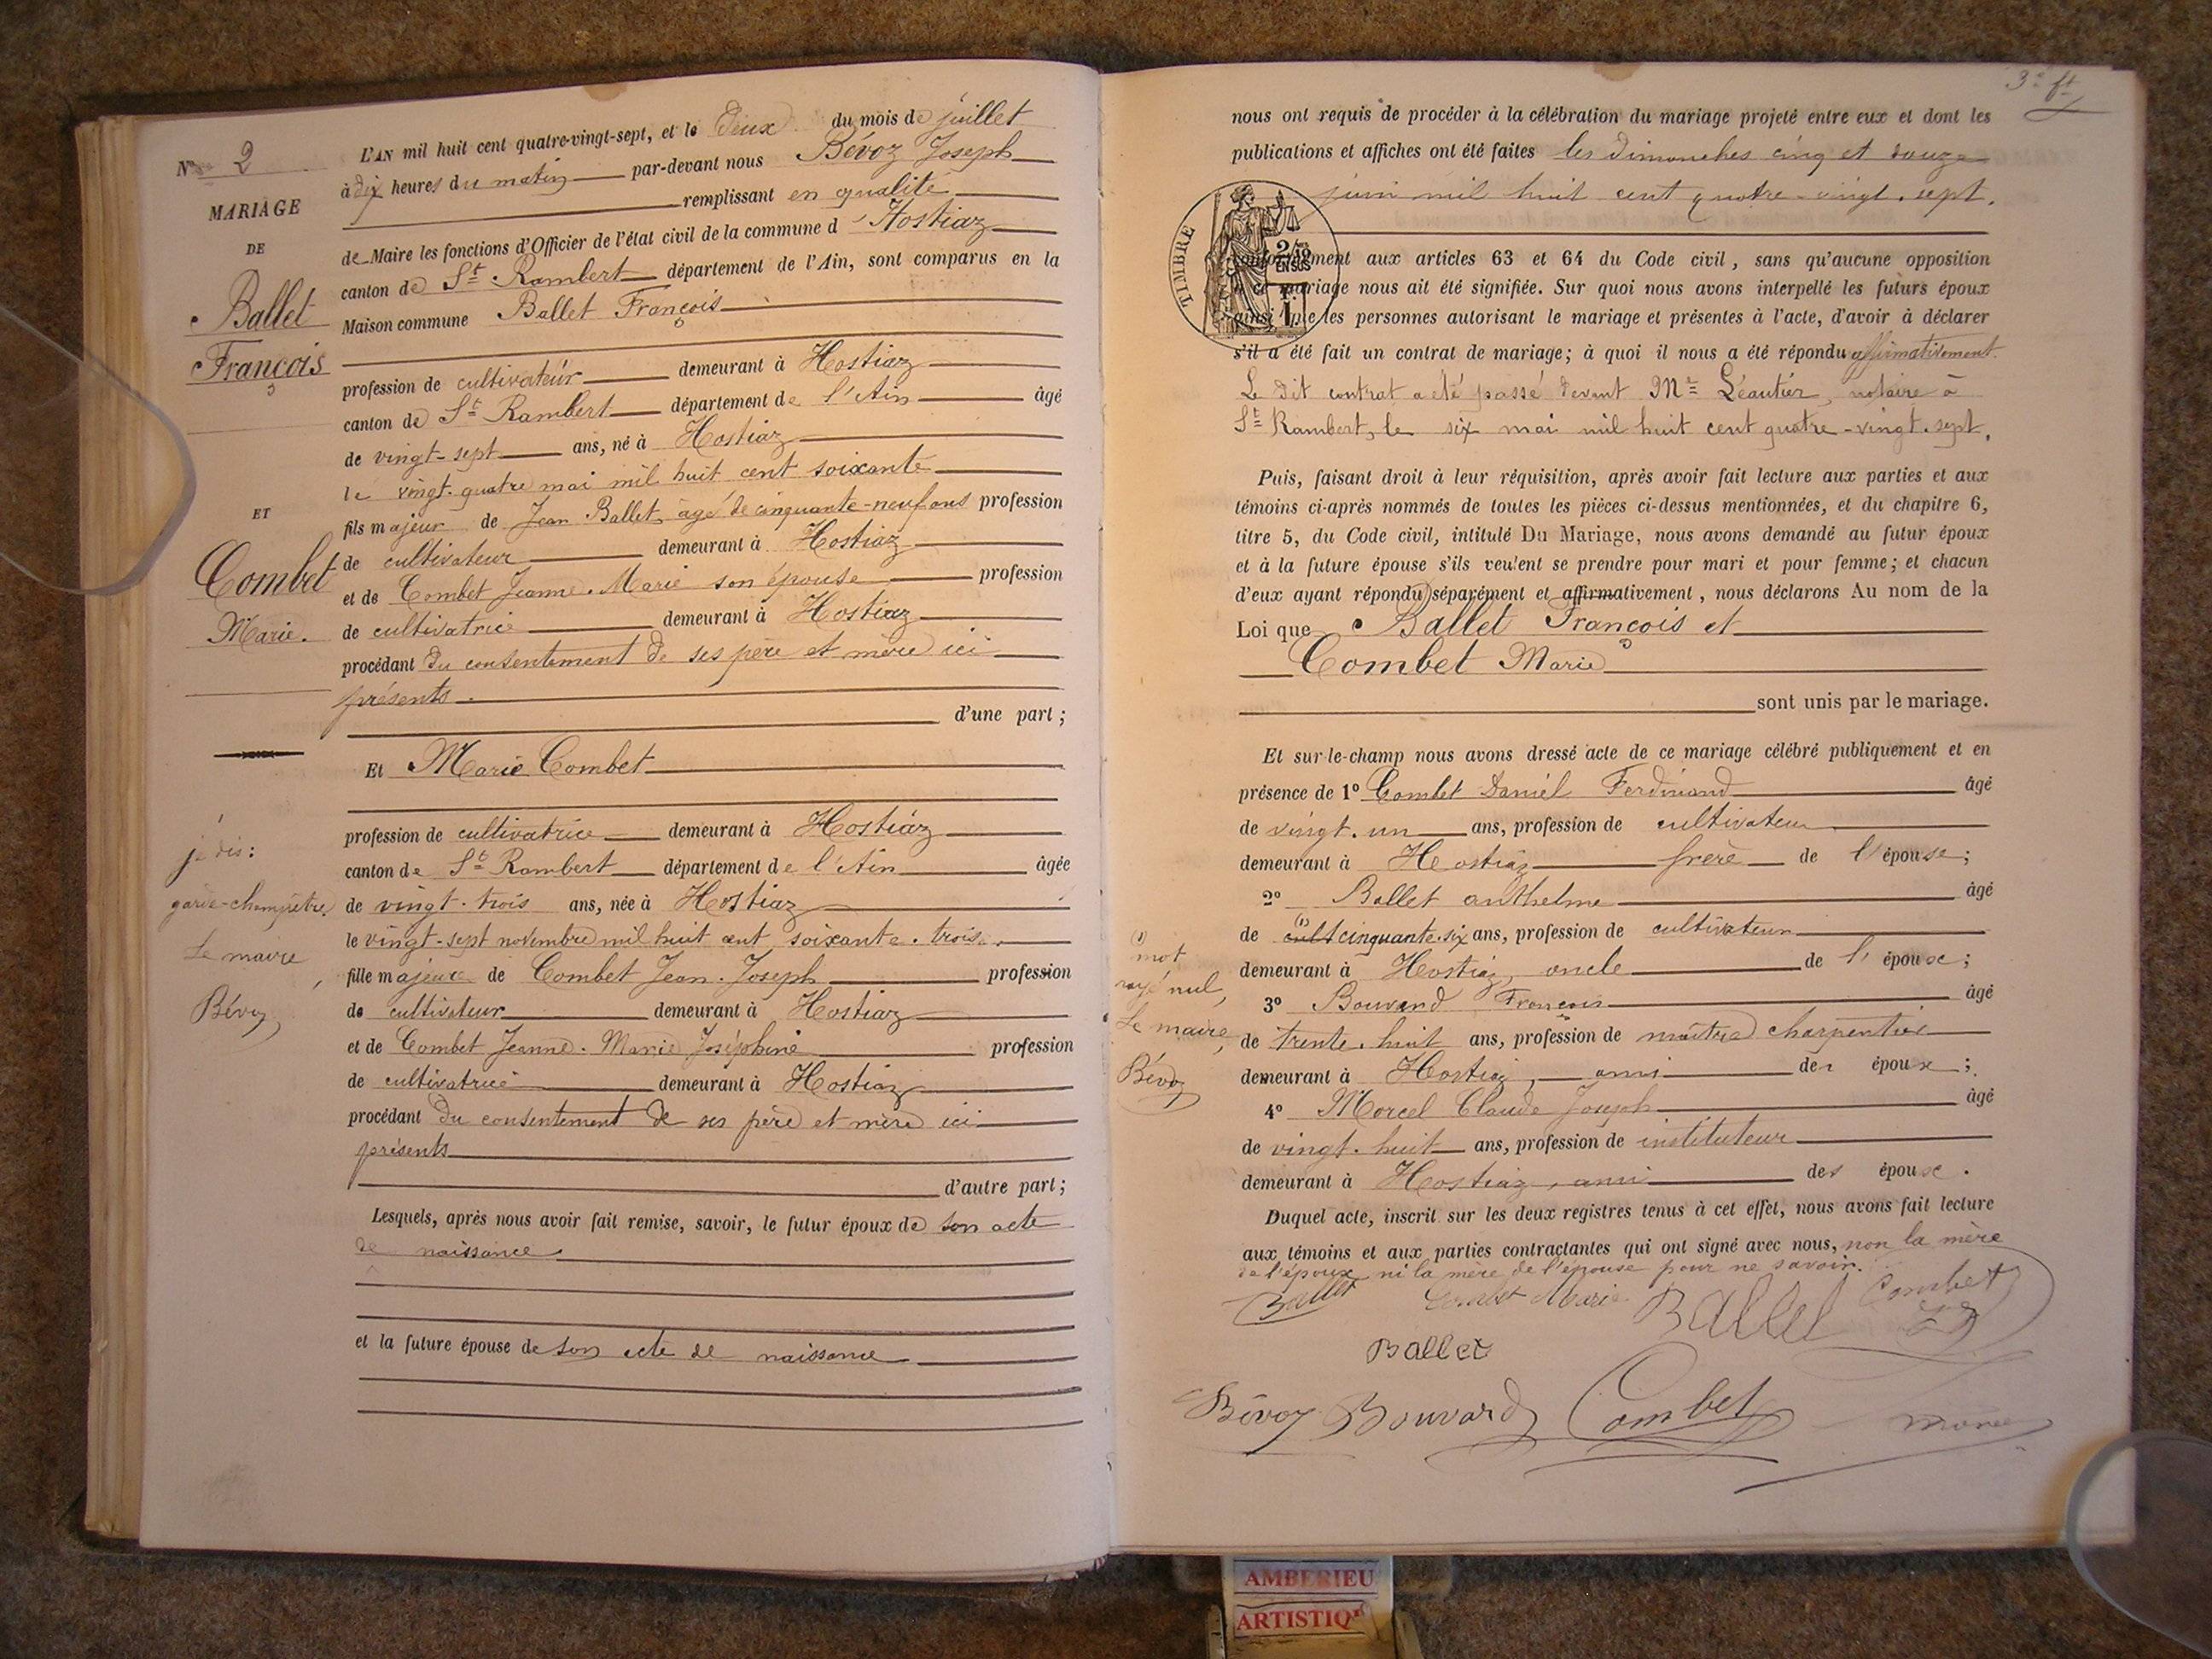 N° 2
MARIAGE
DE
Ballet
François
ET
Combet
Marie.
je dis:
garde-champêtre.
Le maire
Bévoz
L'AN mil huit cent quatre-vingt-sept, et le deux du mois de juillet
à dix heures du matin par-devant nous Bévoz Joseph
remplissant en qualité
de Maire les fonctions d'Officier de l'état civil de la commune d'Hostiaz
canton de St Rambert département de l'Ain, sont comparus en la
Maison commune Ballet François
profession de cultivateur demeurant à Hostiaz
canton de St Rambert département de l'Ain âgé
de vingt-sept ans, né à Hostiaz
le vingt-quatre mai mil huit cent soixante
fils majeur de Jean Ballet, âgé de cinquante-neuf ans profession
de cultivateur demeurant à Hostiaz
et de Combet Jeanne-Marie son épouse profession
de cultivatrice demeurant à Hostiaz
procédant du consentement de ses père et mère ici
présents.
d'une part;
Et Marie Combet
profession de cultivatrice demeurant à Hostiaz
canton de St Rambert département de l'Ain âgée
de vingt-trois ans, née à Hostiaz
le vingt-sept novembre mil huit cent soixante-trois.
fille majeure de Combet Jean-Joseph profession
de cultivateur demeurant à Hostiaz
et de Combet Jeanne-Marie Joséphine profession
de cultivatrice demeurant à Hostiaz
procédant du consentement de ses père et mère ici
présents
d'autre part;
Lesquels, après nous avoir fait remise, savoir, le futur époux de son acte
de naissance
et la future épouse de son acte de naissance
3e ft
nous ont requis de procéder à la célébration du mariage projeté entre eux et dont les
publications et affiches ont été faites les dimanches cinq et douze
juin mil huit cent quatre-vingt-sept.
TIMBRE
2/10 EN SUS
conformément aux articles 63 et 64 du Code civil, sans qu'aucune opposition
à ce mariage nous ait été signifiée. Sur quoi nous avons interpellé les futurs époux
ainsi que les personnes autorisant le mariage et présentes à l'acte, d'avoir à déclarer
s'il a été fait un contrat de mariage; à quoi il nous a été répondu affirmativement.
Le dit contrat a été passé devant Me Léautier, notaire à
St Rambert, le six mai mil huit cent quatre-vingt-sept.
Puis, faisant droit à leur réquisition, après avoir fait lecture aux parties et aux
témoins ci-après nommés de toutes les pièces ci-dessus mentionnées, et du chapitre 6,
titre 5, du Code civil, intitulé Du Mariage, nous avons demandé au futur époux
et à la future épouse s'ils veulent se prendre pour mari et pour femme; et chacun
d'eux ayant répondu séparément et affirmativement, nous déclarons Au nom de la
Loi que Ballet François et
Combet Marie
sont unis par le mariage.
Et sur-le-champ nous avons dressé acte de ce mariage célébré publiquement et en
présence de 1° Combet Daniel Ferdinand âgé
de vingt-un ans, profession de cultivateur
demeurant à Hostiaz frère de l'épouse;
2° Ballet anthelme âgé
de (1) cult cinquante-six ans, profession de cultivateur
demeurant à Hostiaz, oncle de l'époux;
3° Bouvard François âgé
de trente-huit ans, profession de maître charpentier
demeurant à Hostiaz, ami des époux;
4° Morcel Claude Joseph âgé
de vingt-huit ans, profession de instituteur
demeurant à Hostiaz, ami des époux.
Duquel acte, inscrit sur les deux registres tenus à cet effet, nous avons fait lecture
aux témoins et aux parties contractantes qui ont signé avec nous, non la mère
de l'époux ni la mère de l'épouse pour ne savoir.
(1)
mot
rayé nul,
Le maire,
Bévoz
Ballet Combet Marie Ballet Combet
Ballet
Bévoz Bouvard Combet
AMBERIEU
ARTISTIQ